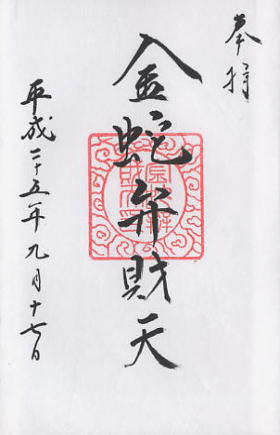 奉拝
金蛇弁財天
平成二十五年九月十七日